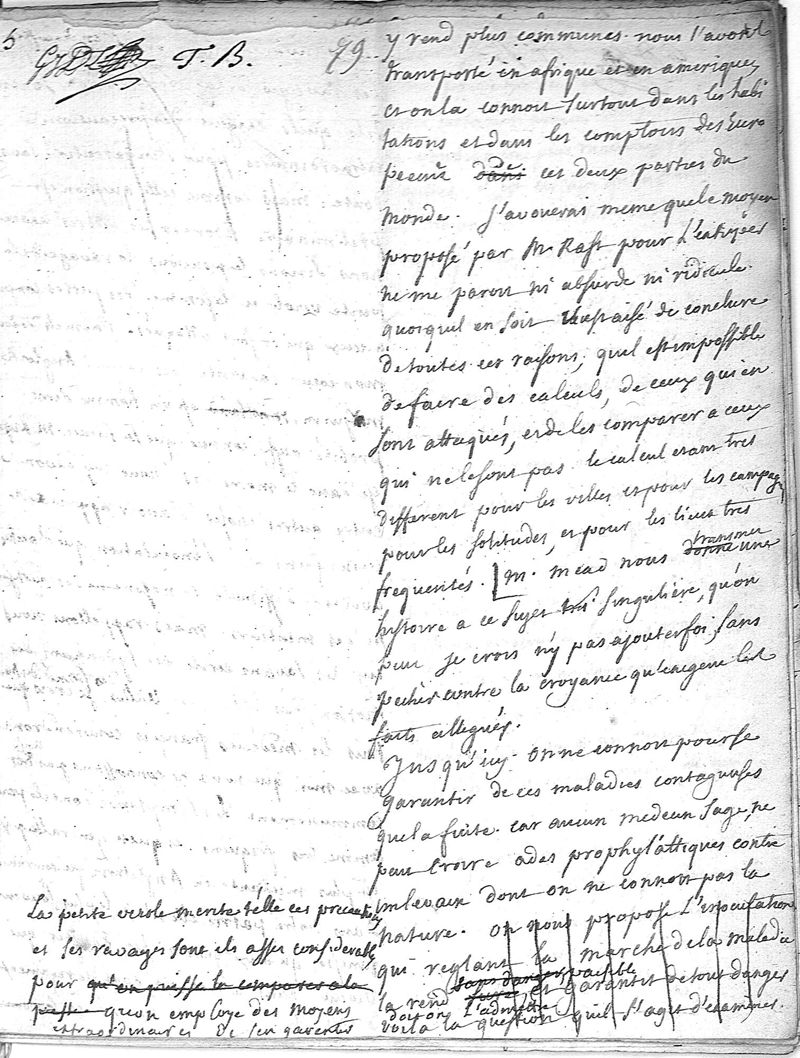 T. B. 79
y rend plus communes. nous l'avons
transporté en afrique et en amerique,
et on la connoit surtout dans les habi
tations et dans les comptoirs des Euro
peens ces deux parties du
monde. J'avouerai meme que le moyen
proposé par Mr Rast pour
ne me paroit ni absurde ni ridicule.
quoiquil en soit il est aisé de conclure
de toutes ces raisons, quil est impossible
de faire des calculs, de ceux qui en
sont attaqués, et de les comparer a ceux
qui ne le sont pas. le calcul etant tres
different pour les villes et pour les campag
pour les solitudes, et pour les lieux tres
frequentés. M. Mead nous transmet
donne une
histoire a ce sujet tres singulière, qu'on
peut je crois n'y pas ajouter foi, sans
pecher contre la croyance qu'exigent les
faits allegués.
Jusqu'icy on ne connoit pour se
garantir de ces maladies contagieuses
que la fuite. car aucun medecin sage, ne
peut croire a des prophylattiques contre
un levain dont on ne connoit pas la
nature. on nous propose L'inoculation
qui reglant la marche de la maladie
la rend sans danger paisible
et garantit de tout danger
doit on L'admettre
voila la question quil s'agit d'examiner.
La petite verole merite t'elle ces precautions
et ses ravages sont ils asses considerables
pour qu'on puisse la comparer a la
peste qu'on employe des moyens
extraordinaires de s'en garentir